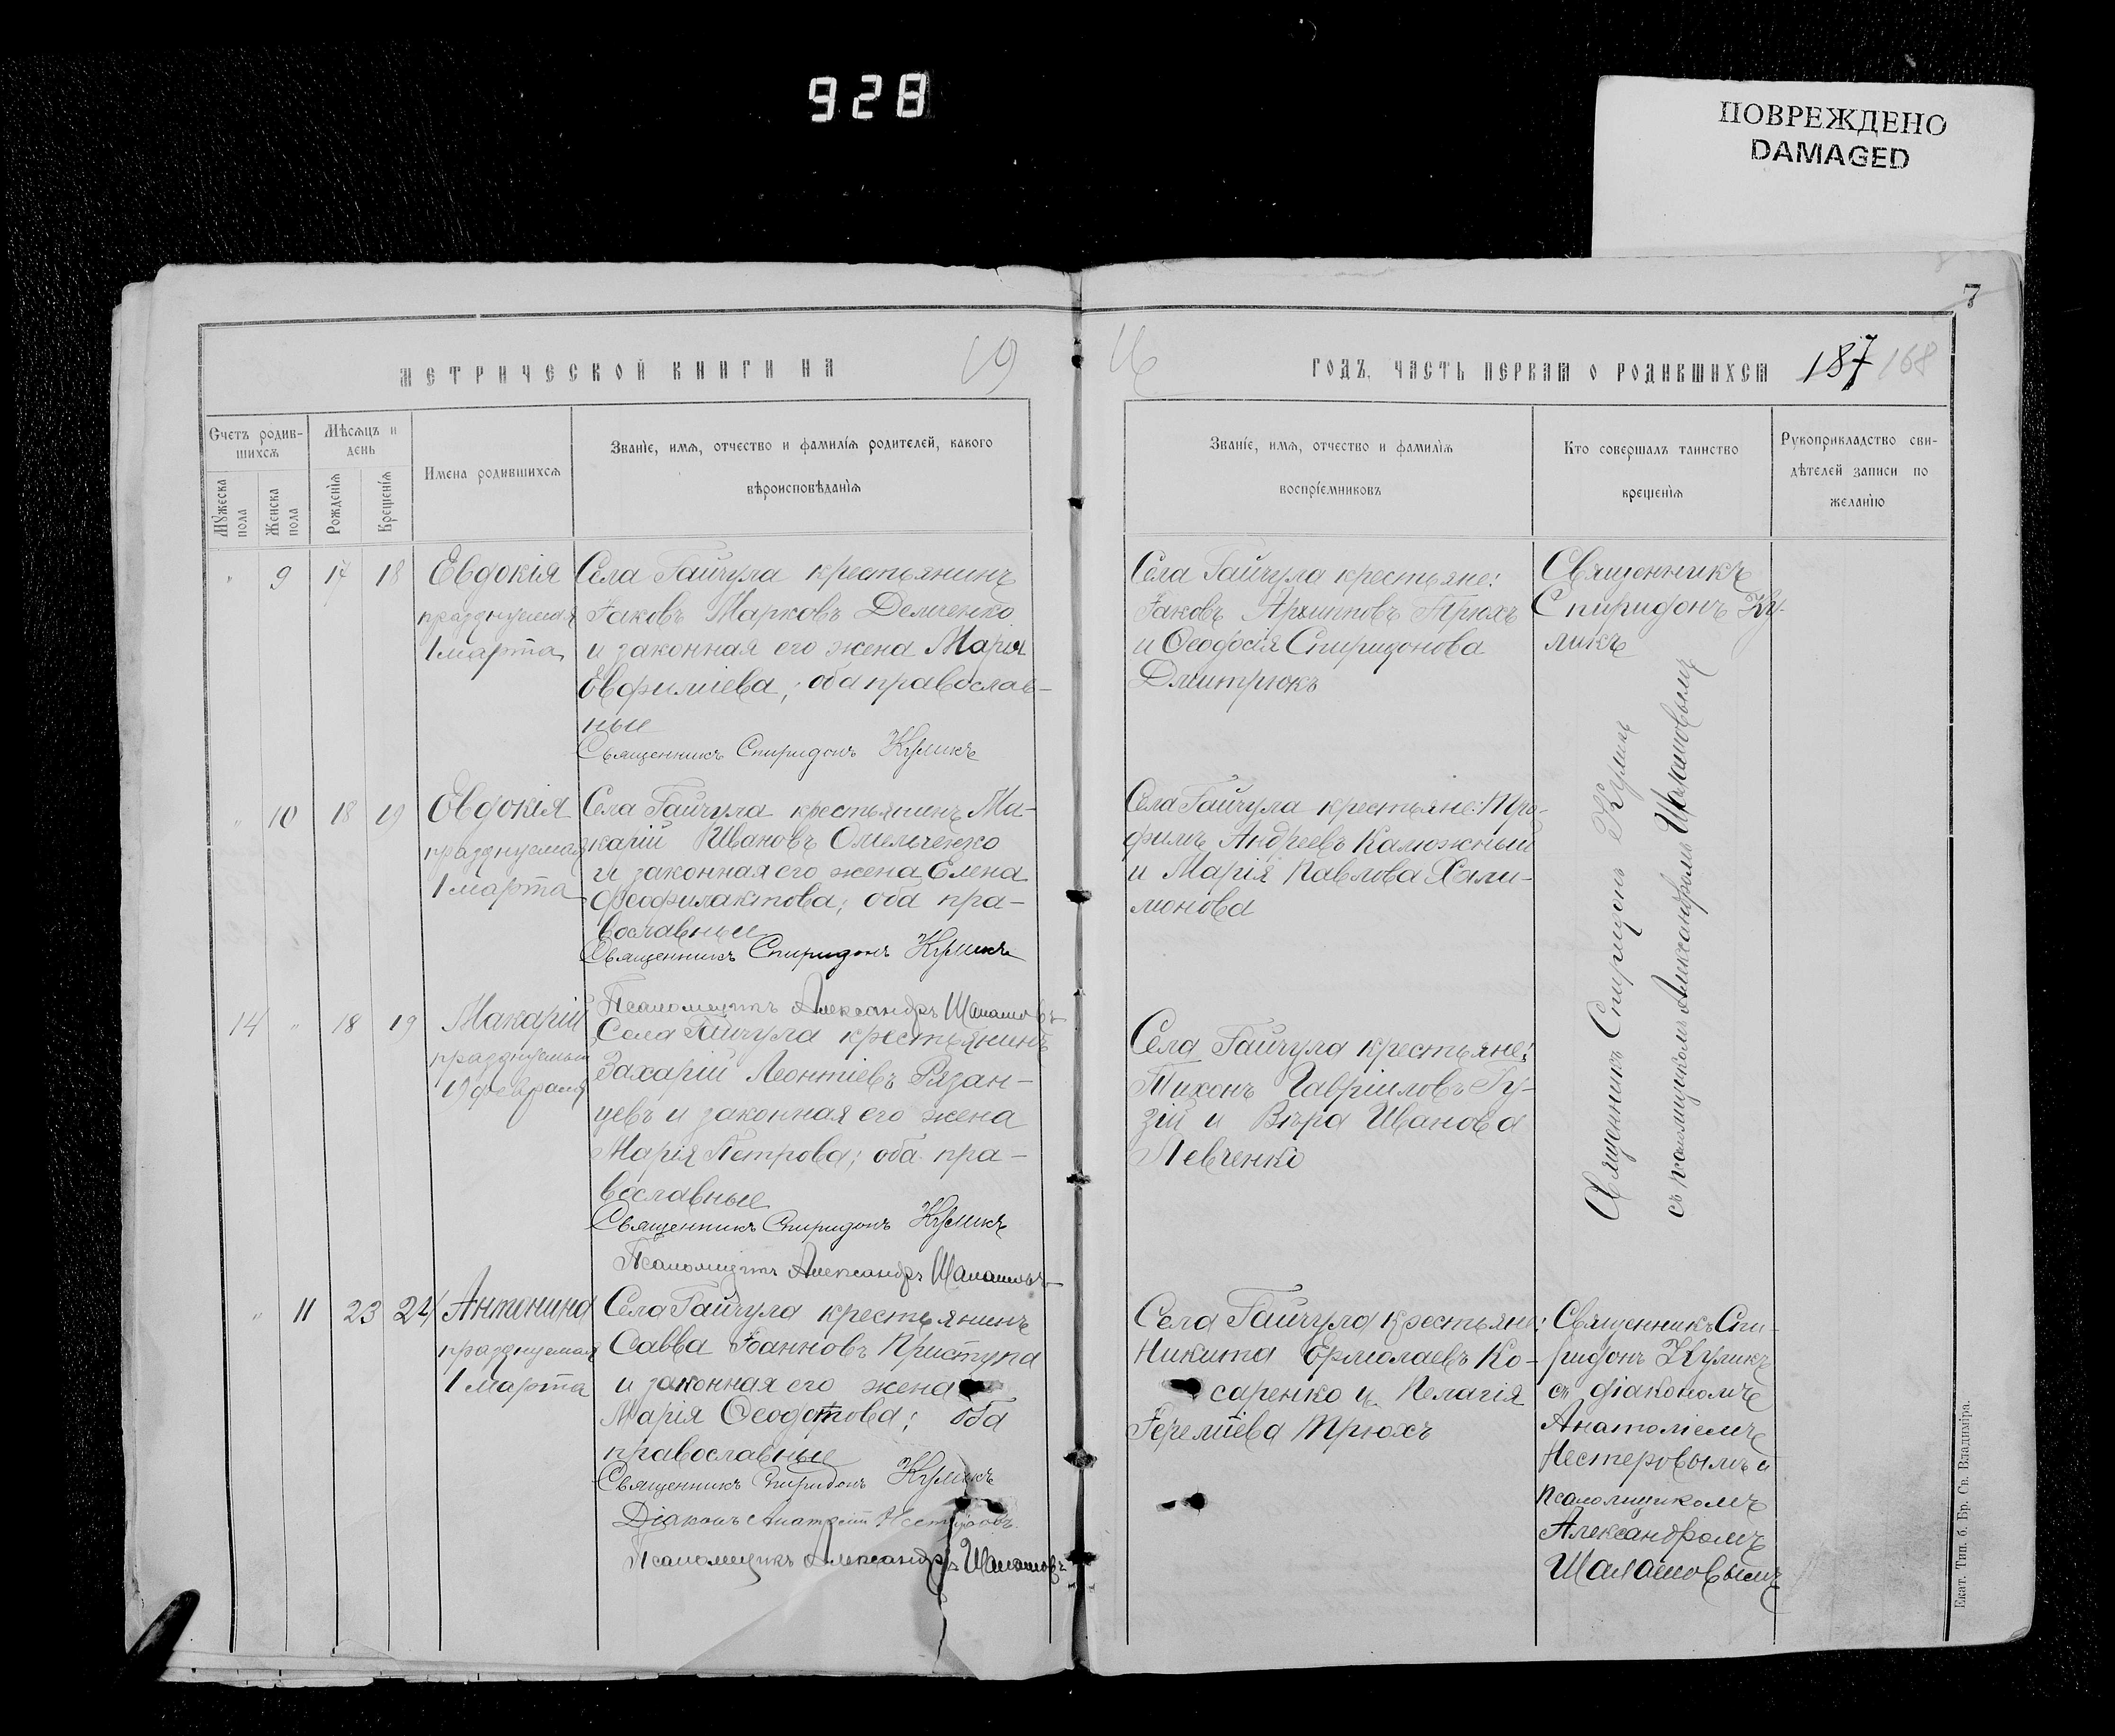 928
ПОВРЕЖДЕНО
DAMAGED
7
МЕТРИЧЕСКОЙ КНИГИ НА 19
16 ГОДЪ, ЧАСТЬ ПЕРВАЯ О РОДИВШИХСЯ 187 168
Счетъ родив-
шихся
Мужеска пола
Женска пола
Мѣсяцъ и
день
Рожденія
Крещенія
Имена родившихся
Званіе, имя, отчество и фамилія родителей, какого
вѣроисповѣданія
Званіе, имя, отчество и фамилія
воспріемниковъ
Кто совершалъ таинство
крещенія
Рукоприкладство сви-
дѣтелей записи по
желанію
" 9 17 18
Евдокія
празднуемая
1 марта
Села Гайчула крестьянинъ
Іаковъ Марковъ Демченко
и законная его жена Марія
Евфиміева; оба православ-
ные
Священникъ Спиридонъ Куликъ
Села Гайчула крестьяне:
Іаковъ Архиповъ Трюхъ
и Ѳеодосія Спиридонова
Дмитрюкъ
Священникъ
Спиридонъ Ку-
ликъ
" 10 18 19
Евдокія
празднуемая
1 марта
Села Гайчула крестьянинъ Ма-
карій Ивановъ Омельченко
и законная его жена Елена
Феофилактова; оба пра-
вославные
Священникъ Спиридонъ Куликъ
Псаломщикъ Александръ Шалашовъ
Села Гайчула крестьяне: Тро-
филъ Андреевъ Калюжный
и Марія Павлова
монова
Священникъ Спиридонъ Куликъ
съ псаломщикомъ Александромъ Шалашовымъ
14 " 18 19
Макарій
празднуемый
19 февраля
Села Гайчула крестьянинъ
Захарій Леонтіевъ Рязан-
цевъ и законная его жена
Марія Петрова; оба пра-
вославные
Священникъ Спиридонъ Куликъ
Псаломщикъ Александръ Шалашовъ
Села Гайчула крестьяне:
Тихонъ Гавріиловъ Гу-
зій и Вѣра Иванова
Левченко
" 11 23 24
Антонина
празднуемая
1 марта
Села Гайчула крестьянинъ
Савва Іоанновъ Приступа
и законная его жена
Марія Ѳеодотова; оба
православные
Священникъ Спиридонъ Куликъ
Діаконъ Анатолій Нестеровъ
Псаломщикъ Александръ Шалашовъ
Села Гайчула крестьяне:
Никита Ермолаевъ Ко-
саренко и Пелагія
Іереміева Трюхъ
Священникъ Спи-
ридонъ Куликъ
съ діакономъ
Анатоліемъ
Нестеровымъ и
псаломщикомъ
Александромъ
Шалашовымъ
Екат. Тип. б. Бр. Св. Владиміра.